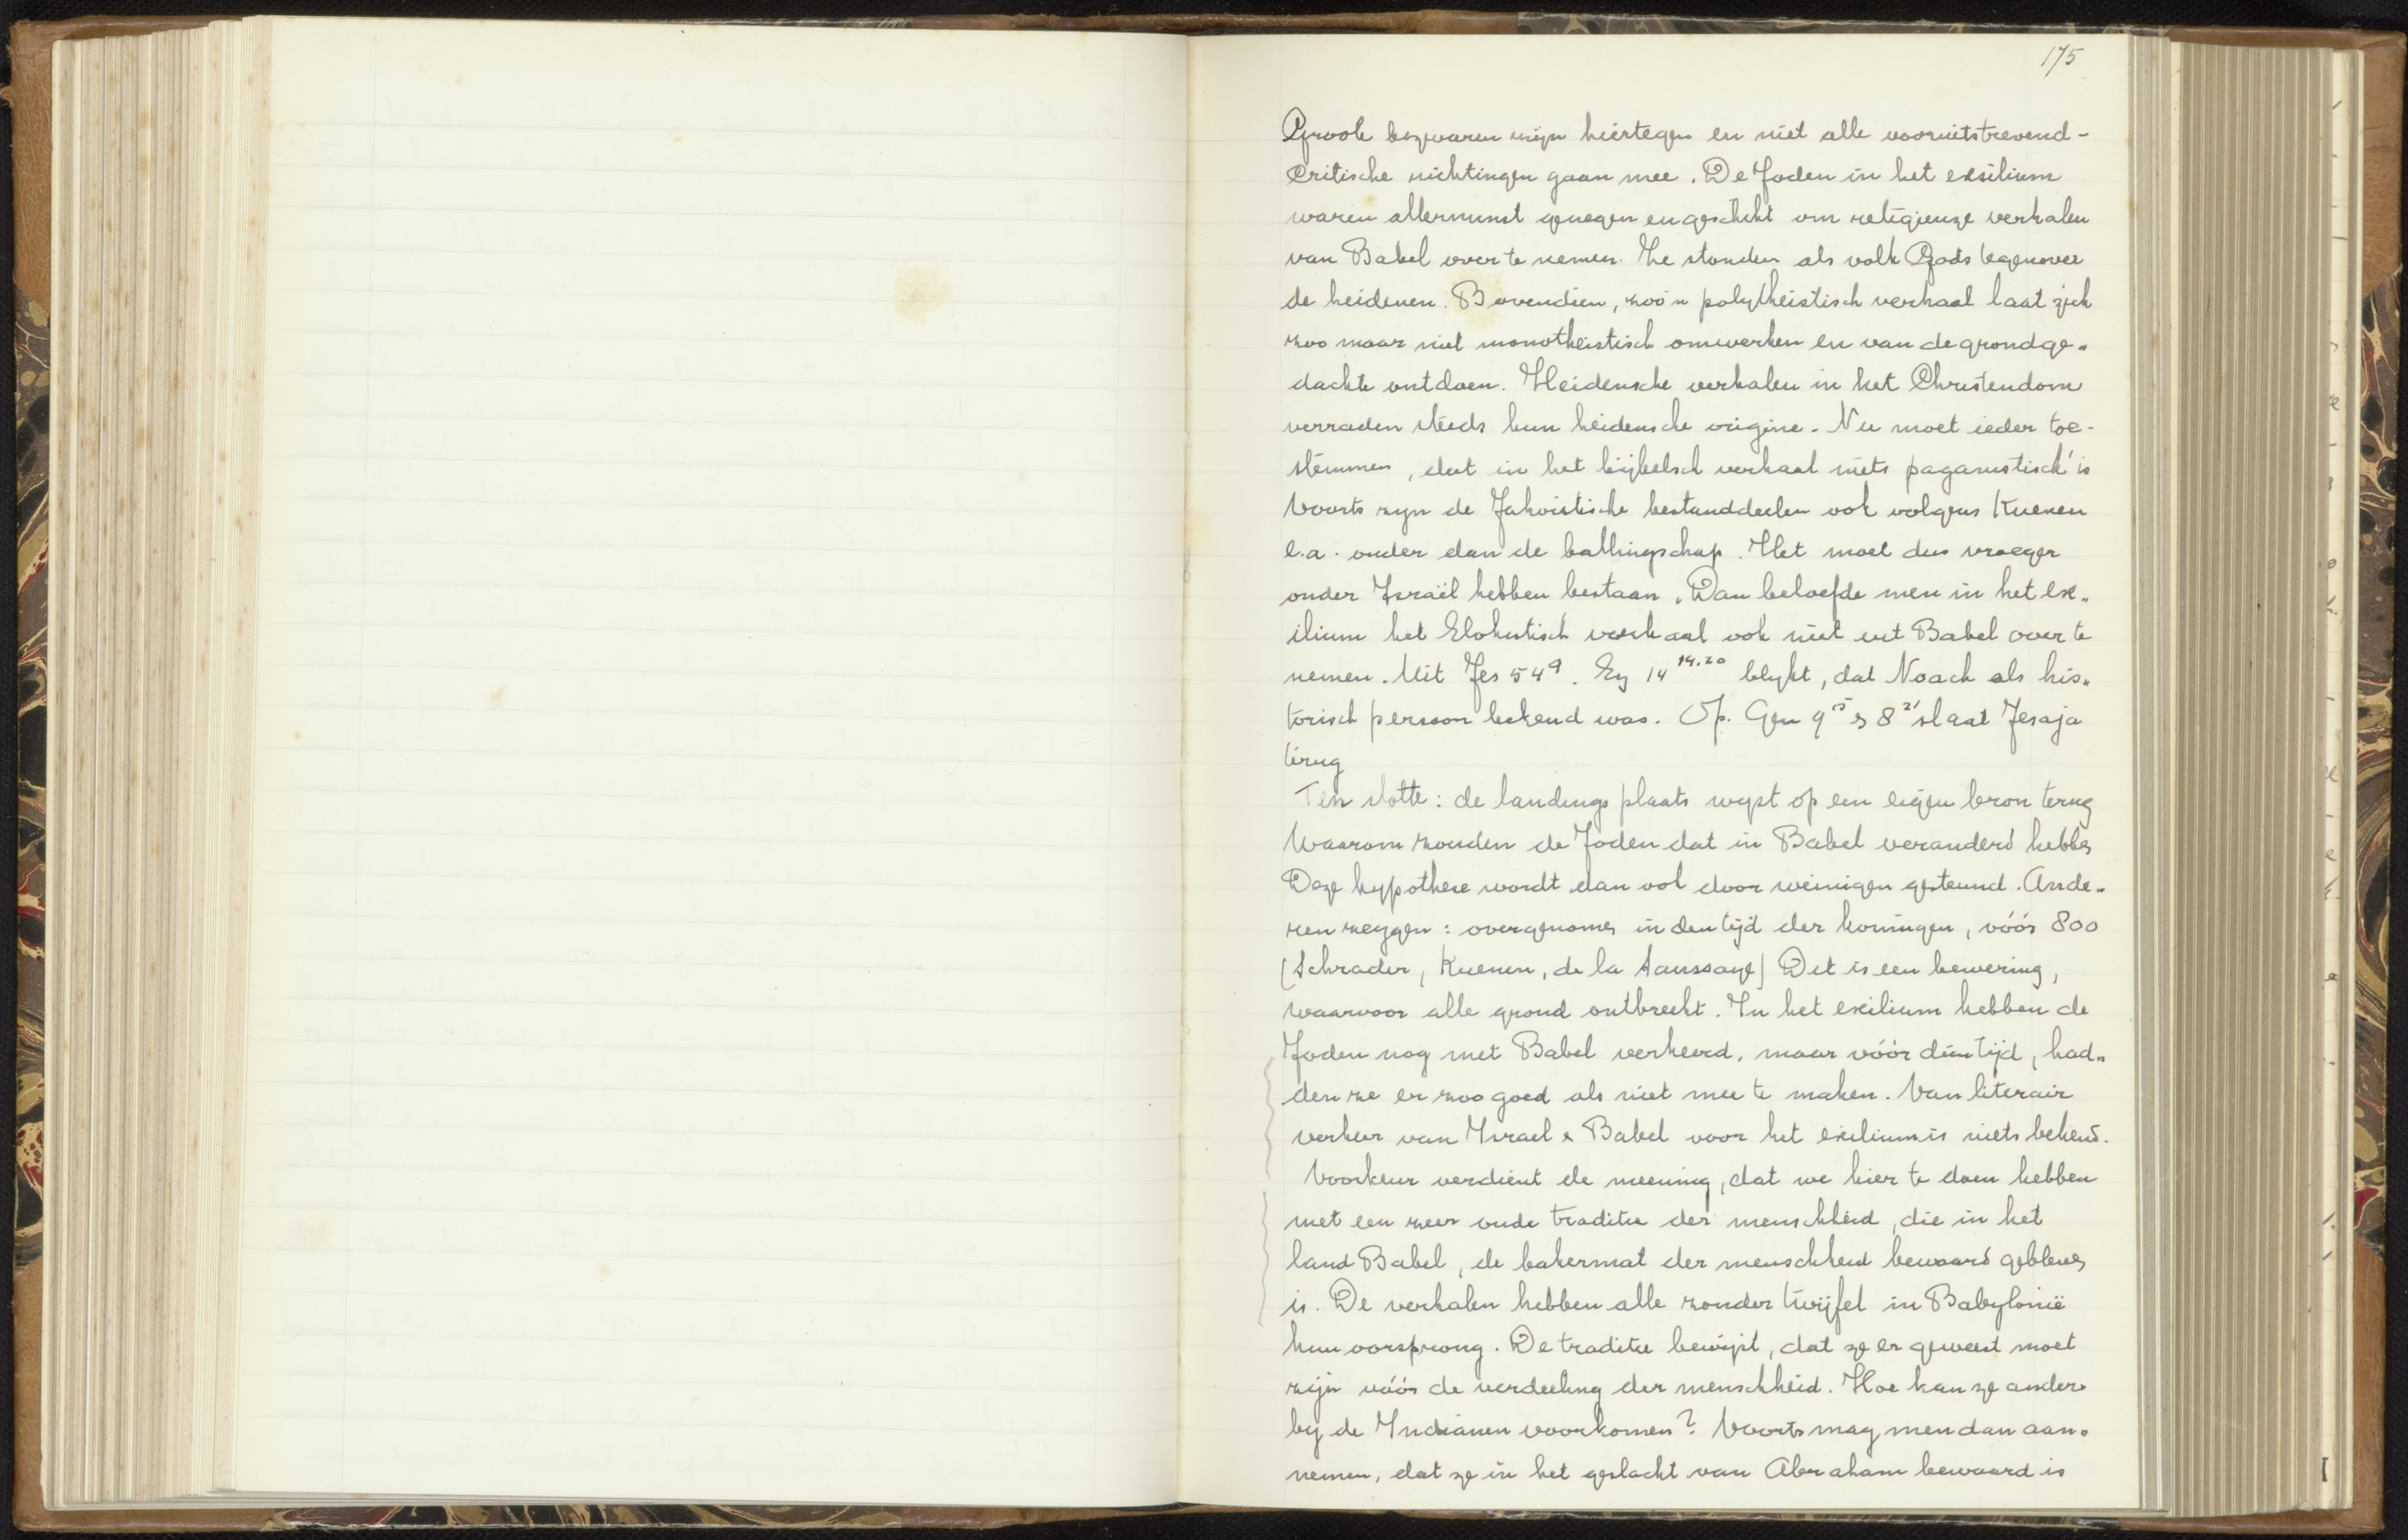 175
Groote bezwaren zijn hiertegen en niet alle vooruitstrevend-
Critische richtingen gaan mee. De Joden in het exsilium
waren allerminst genegen en geschikt om religieuze verhalen
van Babel over te nemen. Ze stonden als volk Gods tegenover
de heidenen. Bovendien, zoo'n polytheistisch verhaal laat zich
zoo maar niet monotheistisch omwerken en van de grondge-
dachte ontdoen. Heidensche verhalen in het Christendom
verraden steeds hun heidensche origine. Nu moet ieder toe-
stemmen, dat in het bijbelsch verhaal niets paganistisch is
Voorts zyn de Jahvistische bestanddeelen ook volgens Kuenen
e.a. ouder dan de ballingschap. Het moet dus vroeger
onder Israël hebben bestaan. Dan beloefde men in het ex-
ilium het Elohistisch verhaal ook niet uit Babel over te
nemen. Uit Jes 54 9. Ez 14 14.20 blykt, dat Noach als his-
torisch persoon bekend was. Op. Gen 9 15 en 8 21 slaat Jesaja
terug
Ten slotte: de landings plaats wyst op een eigen bron terug
Waarom zouden de Joden dat in Babel veranderd hebben
Deze hypothese wordt dan ook door weinigen gesteund. Ande-
ren zeggen: overgenomen in den tijd der koningen, vóór 800
(Schrader, Kuenen, de la Saussaye) Dit is een bewering,
waarvoor alle grond ontbreekt. In het exilium hebben de
Joden nog met Babel verkeerd, maar vóór dien tijd, had-
den ze er zoo goed als niet mee te maken. Van literair
verkeer van Israel & Babel voor het exilium is niets bekend.
Voorkeur verdient de meening, dat we hier te doen hebben
met een zeer oude traditie der menschheid, die in het
land Babel, de bakermat der menschheid bewaard gebleven
is. De verhalen hebben alle zonder twijfel in Babylonië
hun oorsprong. De traditie bewijst, dat ze er geweest moet
zijn vóór de verdeeling der menschheid. Hoe kan ze anders
by de Indianen voorkomen? Voorts mag men dan aan-
nemen, dat ze in het geslacht van Abraham bewaard is